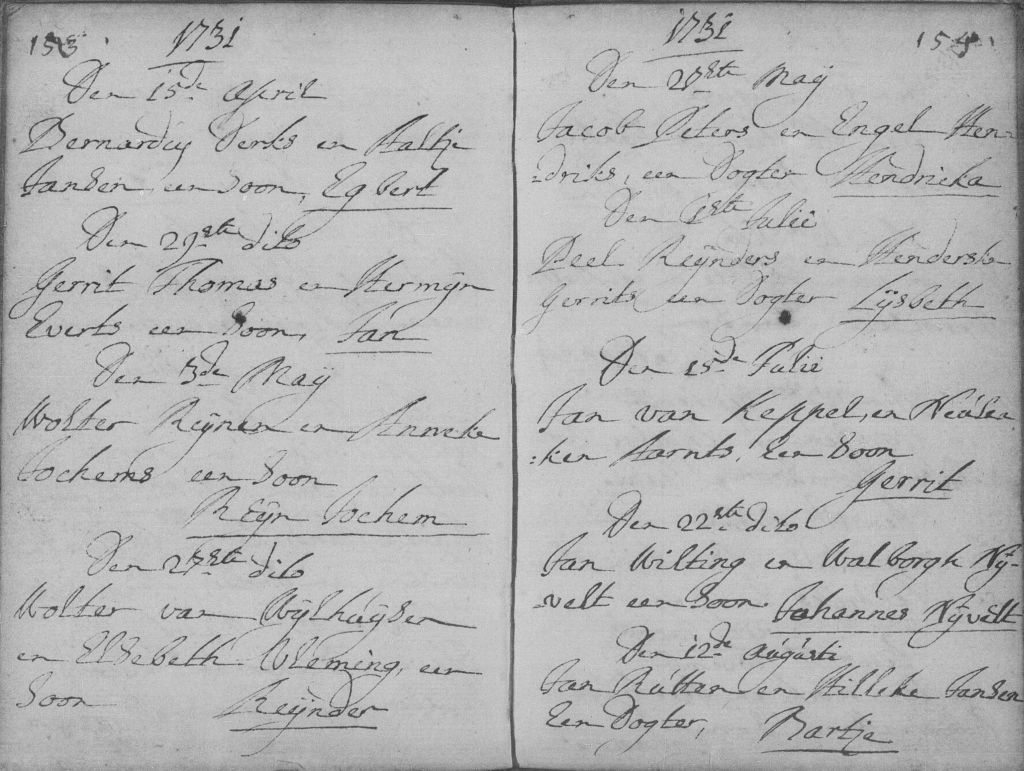 153
1731
Den 15de April
Bernardus Derks en Aaltje
Jansen, een Soon, Egbert
Den 29ste dito
Gerrit Thomas en Hermijn
Everts een Soon, Jan
Den 3de Maÿ
Wolter Reÿnen en Anneke
Jochems een Soon
Reÿn Jochem
Den 27ste dito
Wolter van Wÿlhuÿsen
en Elsebeth Vleming, een
Soon Reÿnder
1731
154
Den 27ste Maÿ
Jacob Peters en Engel Hen-
=driks, een Dogter Hendricka
Den 1ste Julii
Peel Reÿnders en Henderske
Gerrits een Dogter Lÿsbeth
Den 15de Julii
Jan van Keppel, en
:ken Aarnts, Een Soon
Gerrit
Den 22ste dito
Jan Wilting en Walborgh Nÿ-
velt een Soon Johannes Nÿvelt
Den 12de Augusti
Jan Rutten en Hilleke Jansen
Een Dogter, Bartje